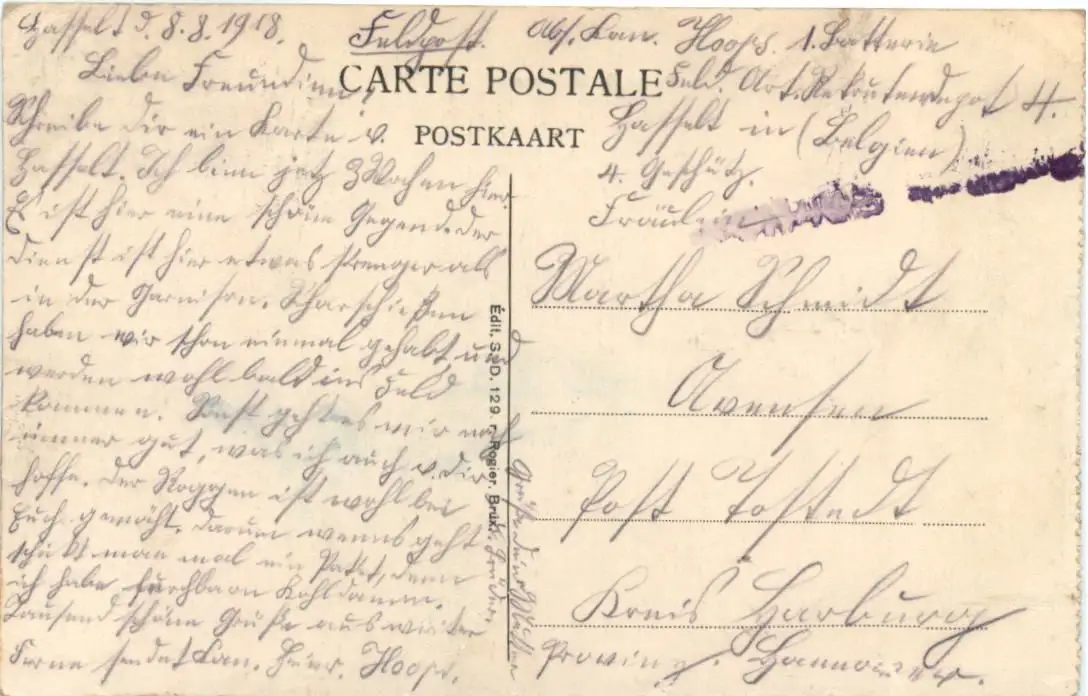 Hasselt d. 8.8.1918.
Feldpost.
Abs. Kan. Hoops. 1. Batterie
Feld. Art. Rekrutendepot 4.
Hasselt in (Belgien)
4. Geschütz.
CARTE POSTALE
POSTKAART
Liebe Freundin!
Schreibe dir ein Karte v.
Hasselt. Ich binn jetz 3 Wochen hier.
Es ist hier eine schöne Gegend. der
Dienst ist hier etwas strenger als
in der Garnison. Scharschießen
haben wir schon einmal gehabt und
werden wohl bald ins Feld
kommen. Sonst geht es mir noch
immer gut, was ich auch v. dir
hoffe. Der Roggen ist wohl bei
Euch gemäht. Darum wenns geht
schickt man mal ein Paket, denn
ich habe furchbarn Kohldamm.
Tausend schöne Grüße aus weiter
Ferne sendet Kan. Heinr. Hoops.
Grüße deine Mutter
Édit. S.D. 129, r. Rogier, Brux.
Fräulein
Martha Schmidt
Avensen
Post Tostedt
Kreis Harburg
Provinz. Hannover.